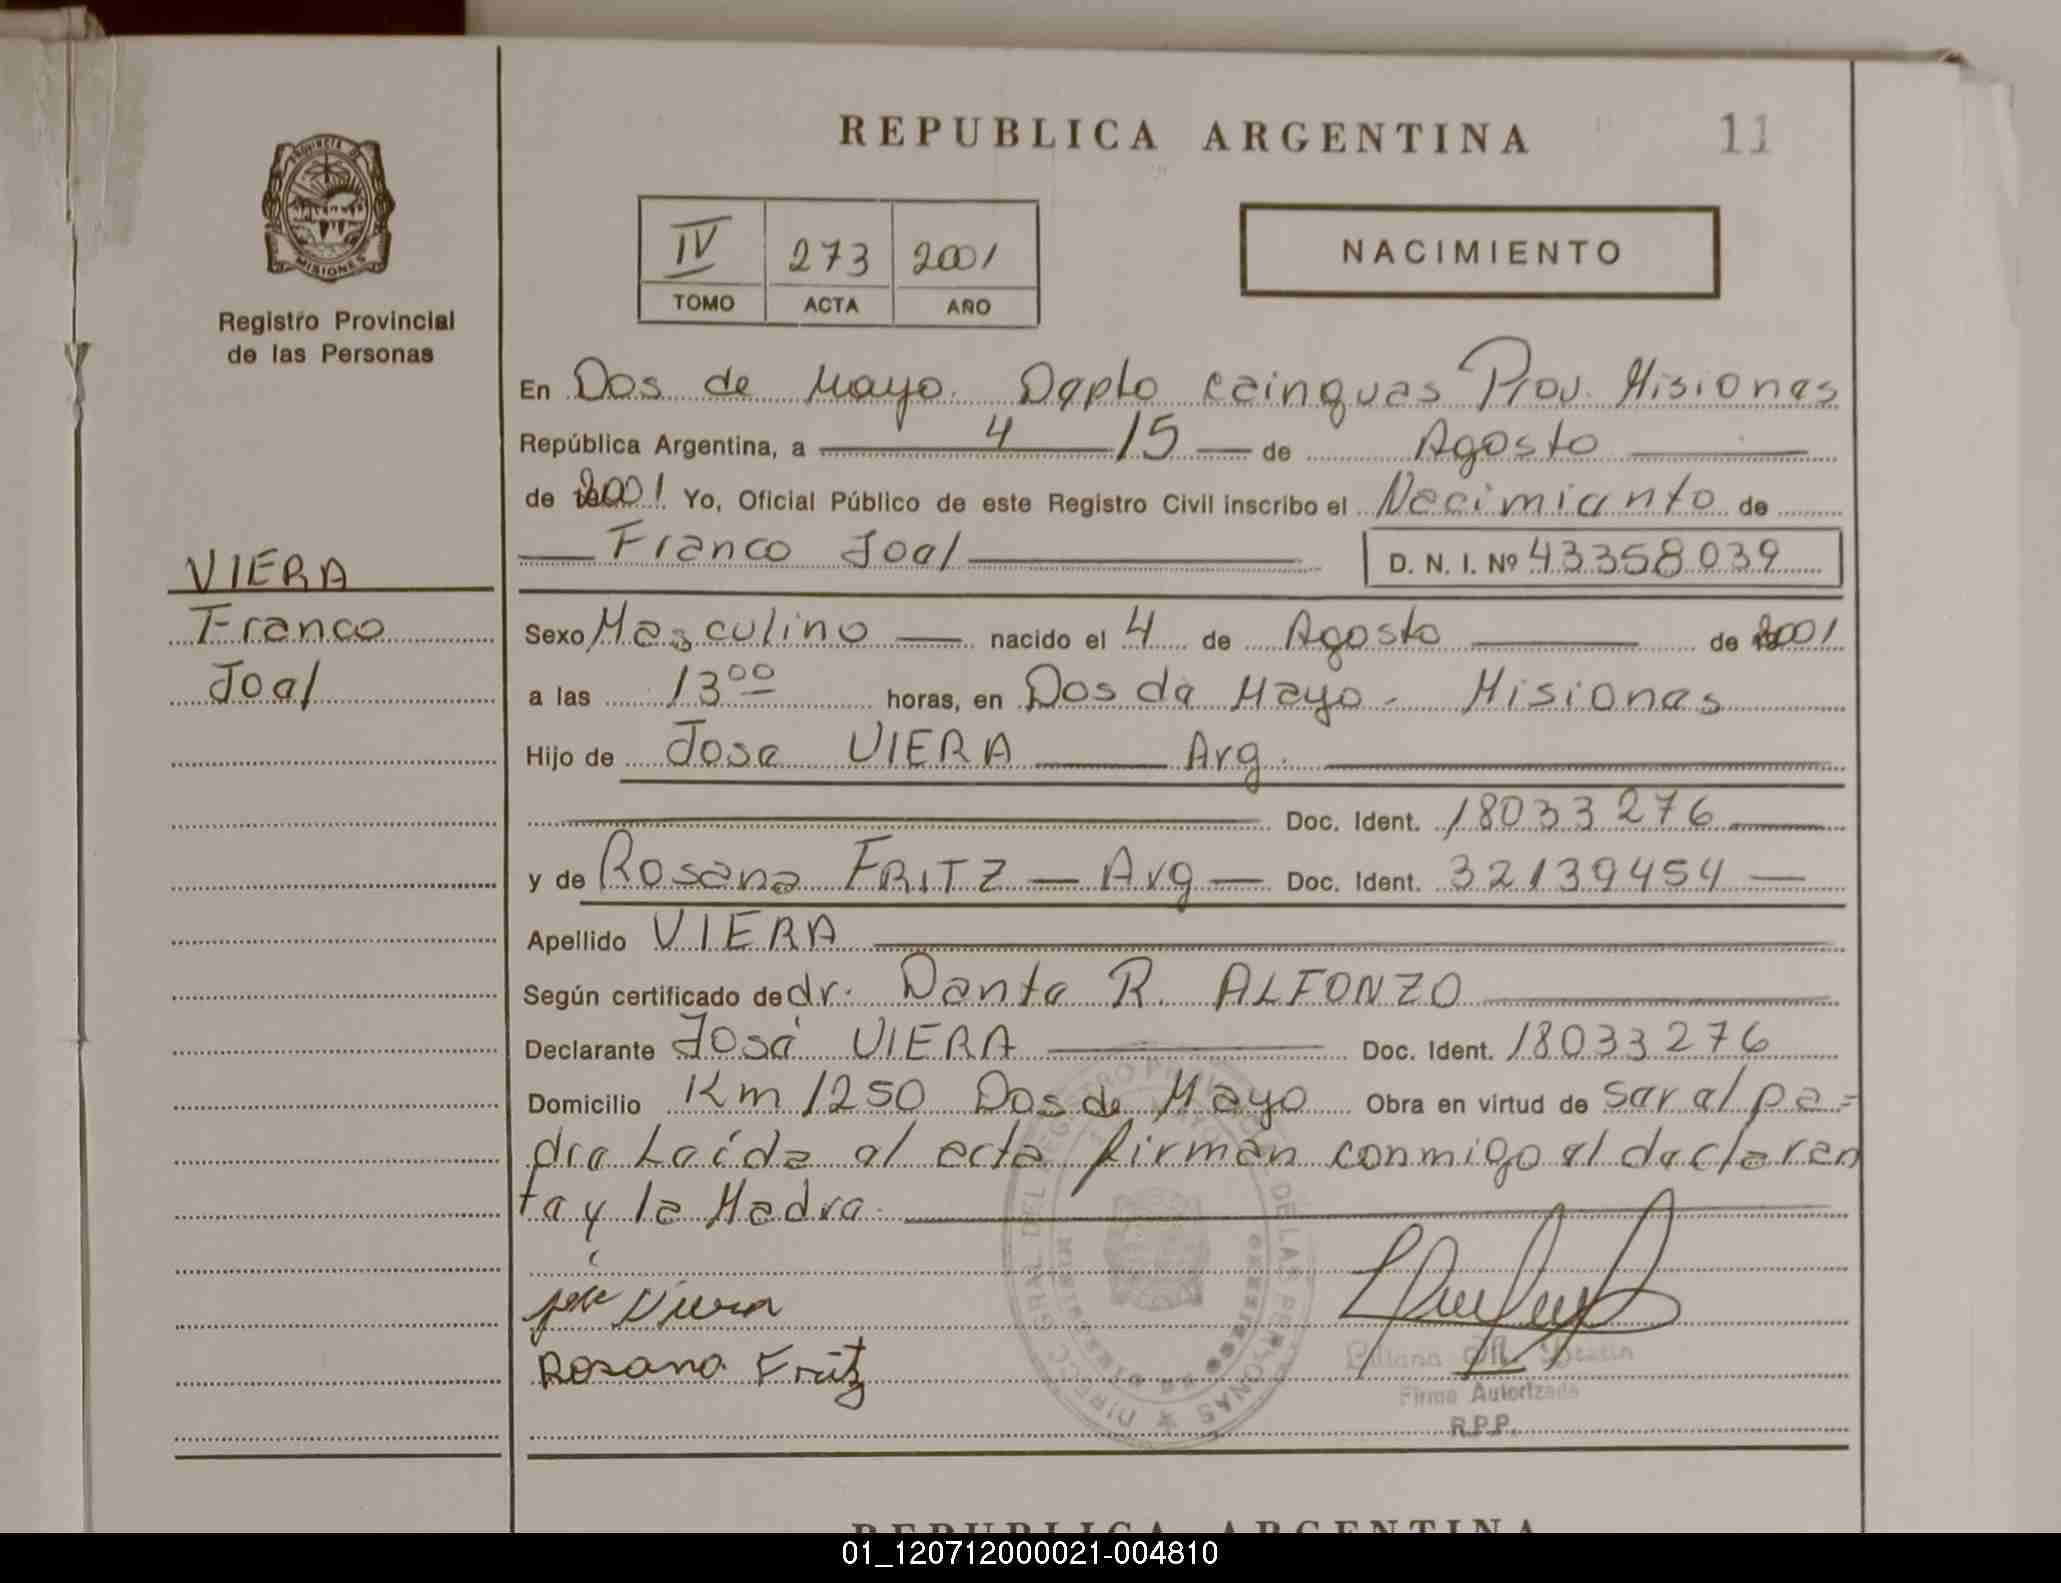 REPUBLICA ARGENTINA
11
PROVINCIA DE
MISIONES
Registro Provincial
de las Personas
IV 273 2001
TOMO ACTA AÑO
NACIMIENTO
En Dos de Mayo. Depto Cainguas Prov. Misiones
República Argentina, a 4 15 de Agosto
de 2001 Yo, Oficial Público de este Registro Civil inscribo el Nacimiento de
Franco Joel D. N. I. Nº 43358039
VIERA
Franco
Joel
Sexo Masculino nacido el 4 de Agosto de 2001
a las 13 00 horas, en Dos de Mayo - Misiones
Hijo de Jose VIERA Arg.
Doc. Ident. 18033276
y de Rosana FRITZ — Arg — Doc. Ident. 32139454
Apellido VIERA
Según certificado de dr. Dante R. ALFONZO
Declarante José VIERA Doc. Ident. 18033276
Domicilio Km 1250 Dos de Mayo Obra en virtud de ser el pa=
dre Leída el acta firman conmigo el declaran
te y la Madre.
José Viera
Rosana Fritz
DIRECC. GRAL DEL REGISTRO PROVINCIAL DE LAS PERSONAS
MISIONES
Firma Autorizada
R.P.P.
REPUBLICA ARGENTINA
01_120712000021-004810